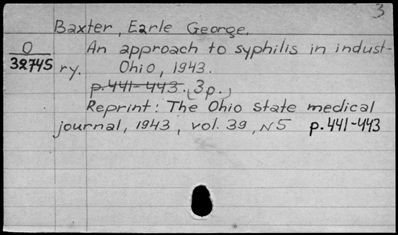 3
Baxter, Earle George.
O
32745
An approach to syphilis in indust-
ry. Ohio, 1943.
p.441-443. (3p.)
Reprint: The Ohio state medical
journal, 1943, vol. 39, N5 p.441-443